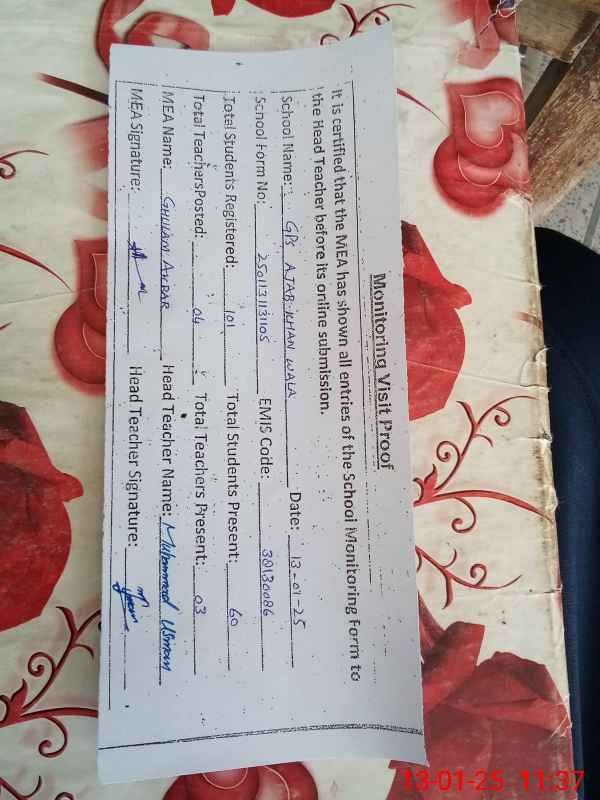 Monitoring Visit Proof
It is certified that the MEA has shown all entries of the School Monitoring Form to
the Head Teacher before its online submission.
School Name: GPS AJAB KHAN WALA Date: 13-01-25
School Form No: 250113113105 EMIS Code: 38130086
Total Students Registered: 101 Total Students Present: 60
Total TeachersPosted: 04 Total Teachers Present: 03
MEA Name: GHULAM AKBAR Head Teacher Name: Muhammad Usman
MEA Signature: Head Teacher Signature:
13-01-25 11:37